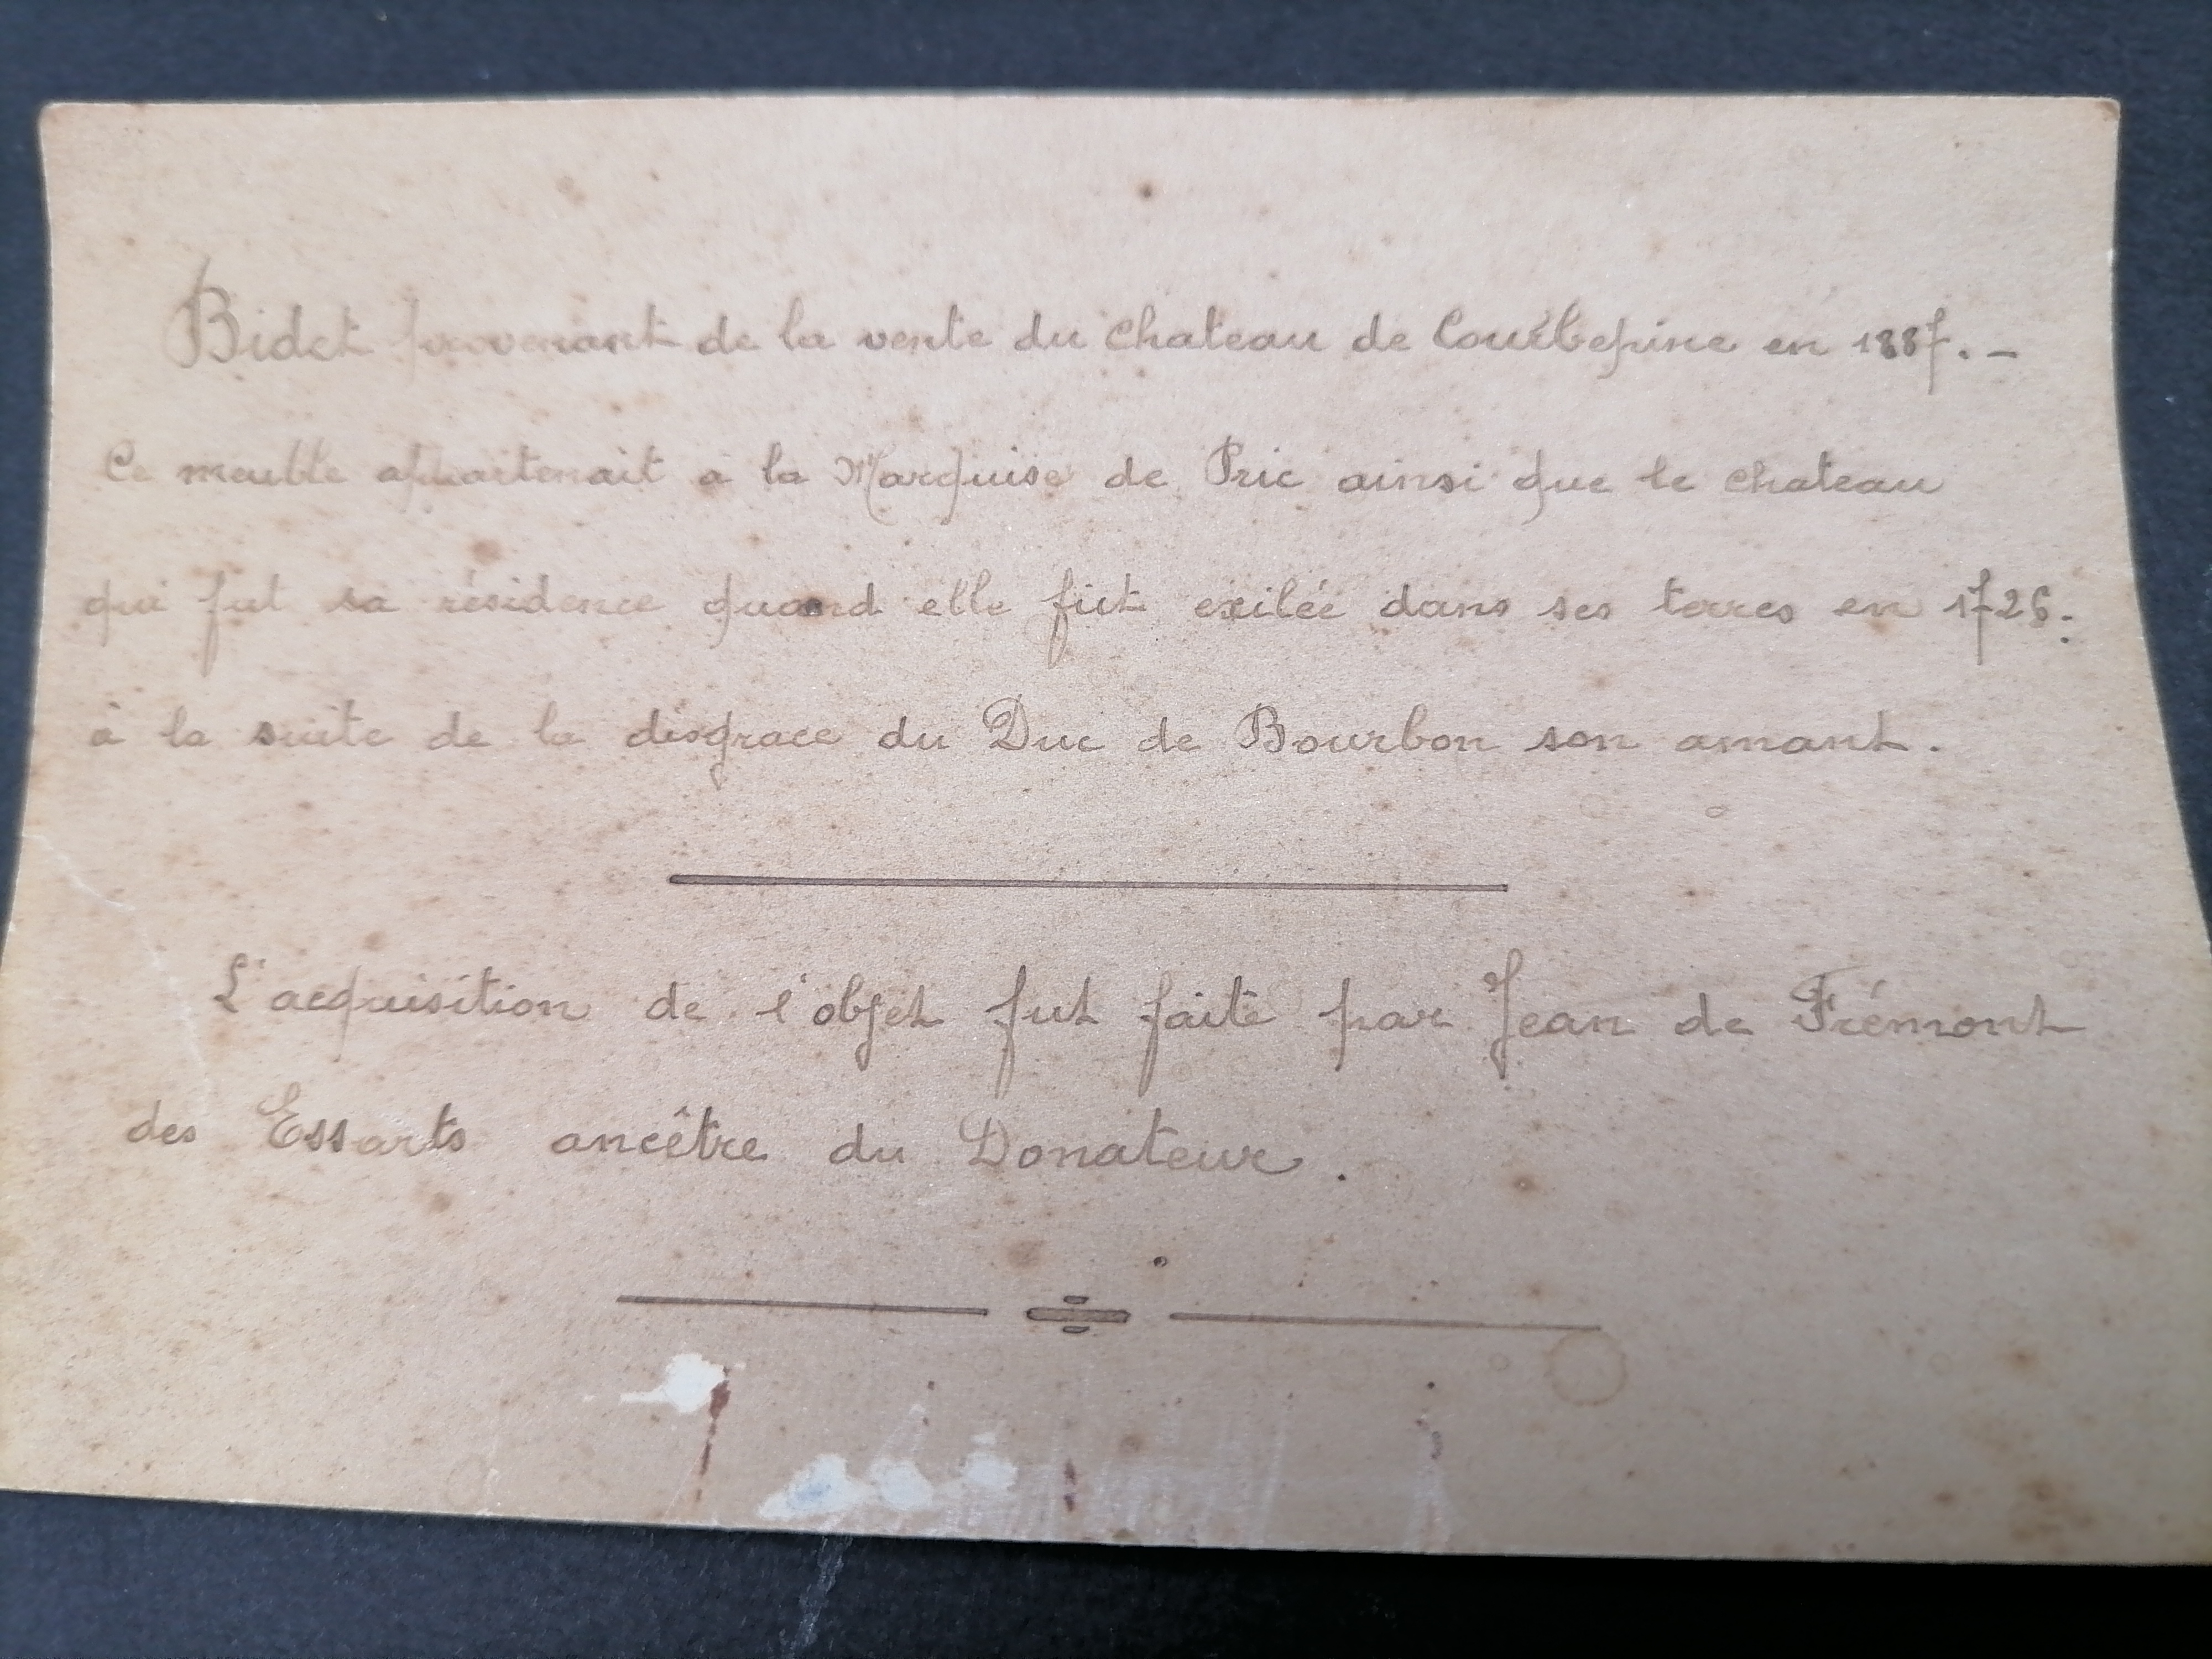 Bidet provenant de la vente du chateau de Courbepine en 1887. –
Ce meuble appartenait a la Marquise de Prie ainsi que le chateau
qui fut sa résidence quand elle fut exilée dans ses terres en 1726.
à la suite de la disgrace du Duc de Bourbon son amant.
L'acquisition de l'objet fut faite par Jean de Frémont
des Essarts ancêtre du Donateur.